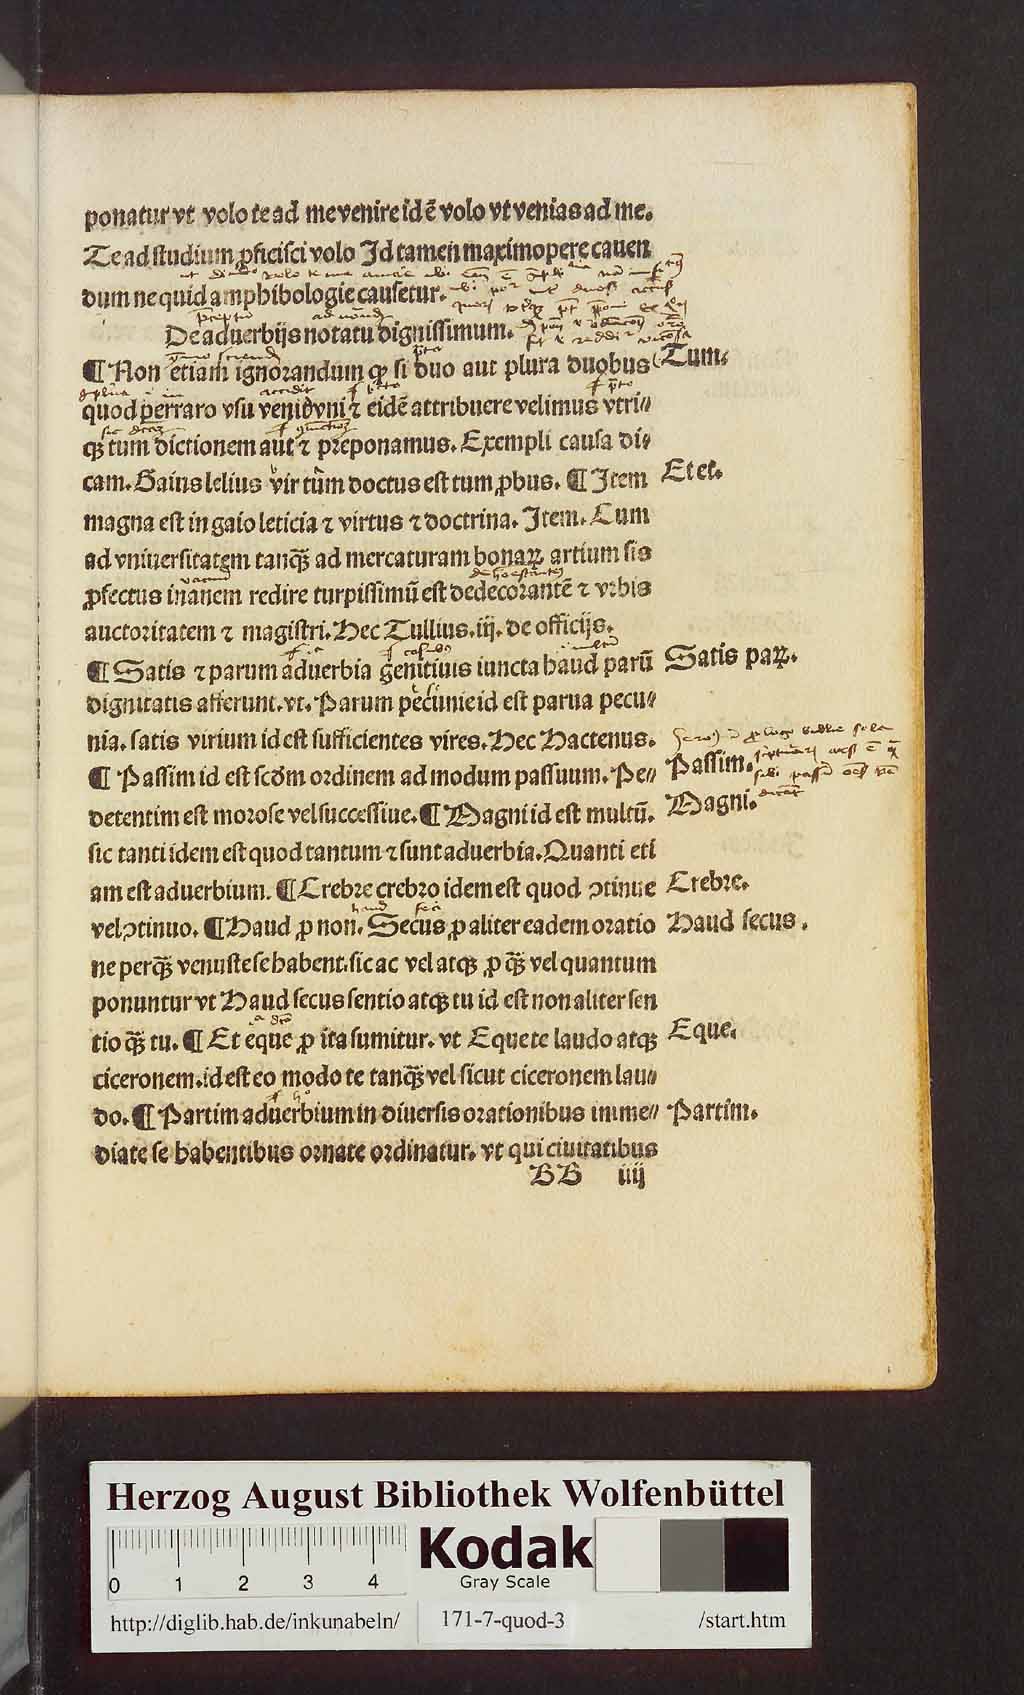 ponatur vt volo te ad me venire idē volo vt venias ad me.
Te ad studium ꝓficisci volo Id tamen maximopere cauen
dum ne quid amphibologie causetur.
De aduerbijs notatu dignissimum.
¶ Non etiam ignorandum ꝙ si duo aut plura duobus
Tum.
quod perraro vsu venit vni ⁊ eidē attribuere velimus vtri⸗
qꝫ tum dictionem aut ⁊ preponamus. Exempli causa di⸗
cam. Gaius lelius vir tum doctus est tum ꝓbus. ¶ Item
Et et.
magna est in gaio leticia ⁊ virtus ⁊ doctrina. Item. Cum
ad vniuersitatem tanqꝫ̄ ad mercaturam bonaꝝ artium sis
ꝓfectus inanem redire turpissimū est dedecorantē ⁊ vrbis
auctoritatem ⁊ magistri. Hec Tullius. iij. de officijs.
¶ Satis ⁊ parum aduerbia genitiuis iuncta haud parū
Satis paꝝ.
dignitatis afferunt. vt. Parum pecunie id est parua pecu⸗
nia. satis virium id est sufficientes vires. Hec Hactenus.
¶ Passim id est scđm ordinem ad modum passuum. Pe⸗
Passim.
detentim est morose vel successiue. ¶ Magni id est multū.
Magni.
sic tanti idem est quod tantum ⁊ sunt aduerbia. Quanti eti
am est aduerbium. ¶ Crebre crebro idem est quod ↄtinue
Crebre.
vel ↄtinuo. ¶ Haud ꝓ non. Secus ꝓ aliter eadem oratio
Haud secus.
ne perqꝫ̄ venuste se habent. sic ac vel atqꝫ ꝓ qꝫ̄ vel quantum
ponuntur vt Haud secus sentio atqꝫ tu id est non aliter sen
tio qꝫ̄ tu. ¶ Et eque ꝓ ita sumitur. vt Eque te laudo atqꝫ
Eque.
ciceronem. id est eo modo te tanqꝫ̄ vel sicut ciceronem lau⸗
do. ¶ Partim aduerbium in diuersis orationibus imme⸗
Partim.
diate se habentibus ornate ordinatur. vt qui ciuitatibus
BB iiij
Herzog August Bibliothek Wolfenbüttel
0 1 2 3 4
Kodak
Gray Scale
http://diglib.hab.de/inkunabeln/ 171-7-quod-3 /start.htm